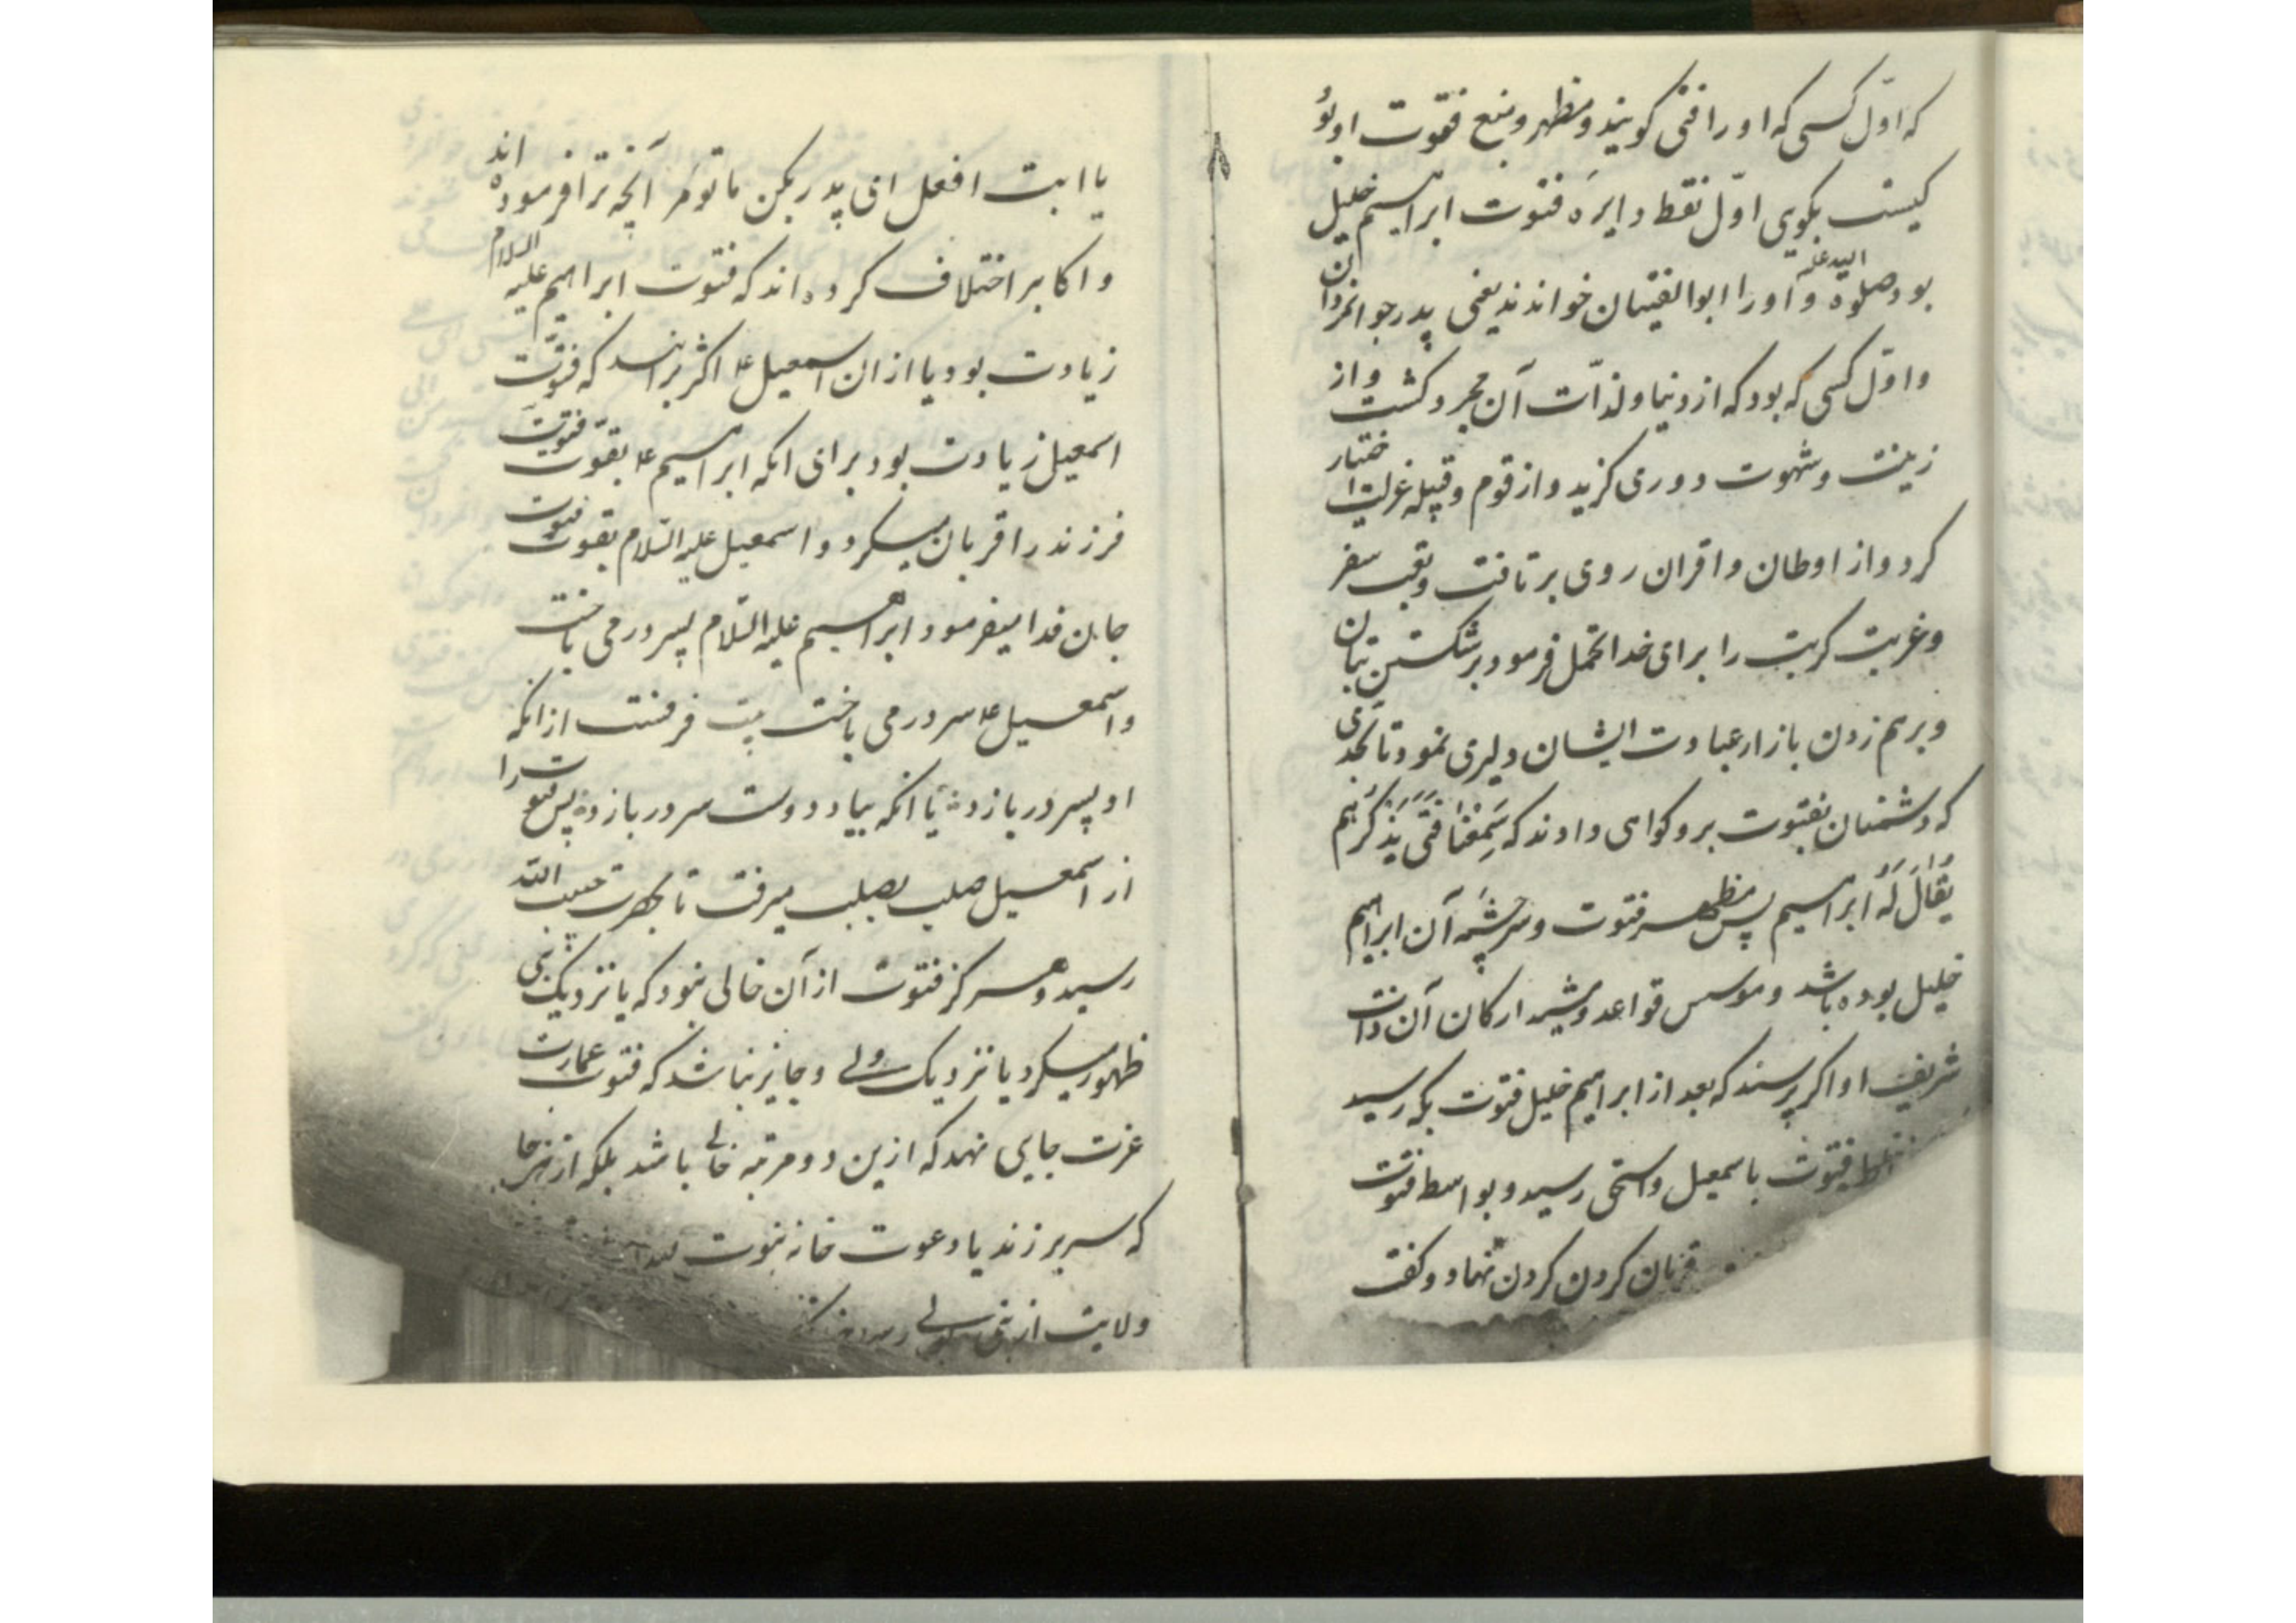 که اوّل کسی که او را فتی گویند و مظهر و منبع فتوت او بود
کیست بگوی اوّل نقطهٔ دایرَه فتوت ابراهیم خلیل
بود صلوة الله علیه و او را ابوالفتیان خواندند یعنی پدر جوانمردان
و اوّل کسی که بود که از دنیا و لذّات آن مجرد کشت و از
زینت و شهوت دوری کزید و از قوم و قبیله عزلت اختیار
کرد و از اوطان و اقران روی برتافت و تعب سفر
و غربت کربت را برای خدا تحمل فرمود بر شکستن بتان
و برهم زدن بازار عبادت ایشان دلیری نمود تا بحدّی
که دشمنان بفتوت برو کواهی دادند که سَمِعْنَا فَتًی یَذْکُرُهُم
یُقَالُ لَهُ ابراهیم پس مظهر فتوت و سرچشمَه آن ابراهیم
خلیل بوده باشد و موسس قواعد و مشید ارکان آن ذات
شریف او اکر پرسند که بعد از ابراهیم خلیل فتوت بکه رسید
فتوت باسمعیل و اسحق رسید و بواسطه فتوت
قربان کردن کردن نهاد و کفت
یا ابت افعل ای پدر بکن ما تومَر آنچه ترا فرموده اند
و اکابر اختلاف کرده اند که فتوت ابراهیم علیه السلام
زیادت بود یا از ان اسمعیل ع اکثر برانند که فتوّت
اسمعیل زیادت بود برای انکه ابراهیم ع بقوّت فتوت
فرزند را قربان میکرد و اسمعیل علیه السّلام بقوت فتوت
جان فدا میفرمود ابراهیم علیه السّلام پسر در می باخت
و اسمعیل ع سر در می باخت بیت فرقست از انکه
او پسر در بازد * یا انکه بیاد دوست سر در بازد * پس فتوت را
از اسمعیل صلب بصلب میرفت تا بحضرت حبیب الله
رسید و هرکز فتوت از آن خالی نبود که یا نزدیک نبی
ظهور میکرد یا نزدیک ولی و جایز نباشد که فتوت عمارت
عزت جایی نهد که ازین دو مرتبه خالی باشد بلکه از هر جا
که سر بر زند یا دعوت خانه نبوت
ولایت از